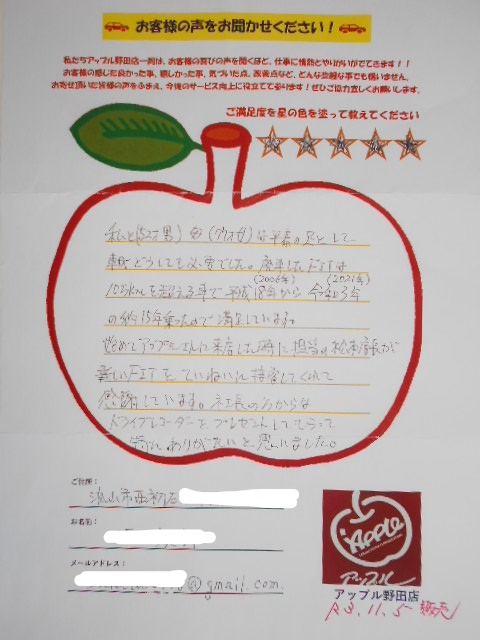 お客様の声をお聞かせください!
私たちアップル野田店一同は、お客様の喜びの声を聞くほど、仕事に情熱とやりがいがでてきます!!
お客様の感じた良かった事、嬉しかった事、気づいた点、改善点など、どんな些細な事でも構いません。
お寄せ頂いた皆様の声をふまえ、今後のサービス向上に役立てて参ります!ぜひご協力宜しくお願いします。
ご満足度を星の色を塗って教えてください
私と(52才男) 母 は平素の足として
車がどうしても必要でした。廃車したFITは
(2006年) (2021年)
10万kmを超える車で平成18年から令和3年
の約15年乗ったので満足しています。
初めてアップルさんに来店した時に担当の松本店長が
新しいFITを ていねいに接客してくれて
感謝しています。社長の方からは
ドライブレコーダーをプレゼントしてもらって
ありがたいと思いました。
ご住所:
流山市西初石
お名前:
メールアドレス:
@gmail.com
Apple
アップル
アップル野田店
R3.11.5 販売